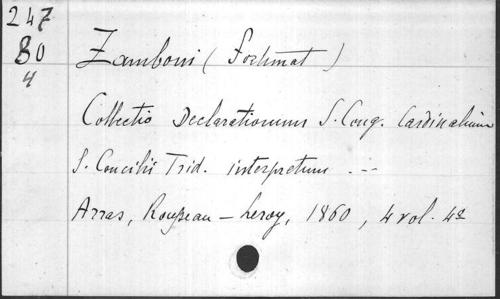 247
80
4
Zamboni (Fortunat)
Collectio Declarationum S. Cong. Cardinalium
S. Concilii Trid. interpretum ...
Arras, Rousseau-Leroy, 1860, 4 vol. 4º